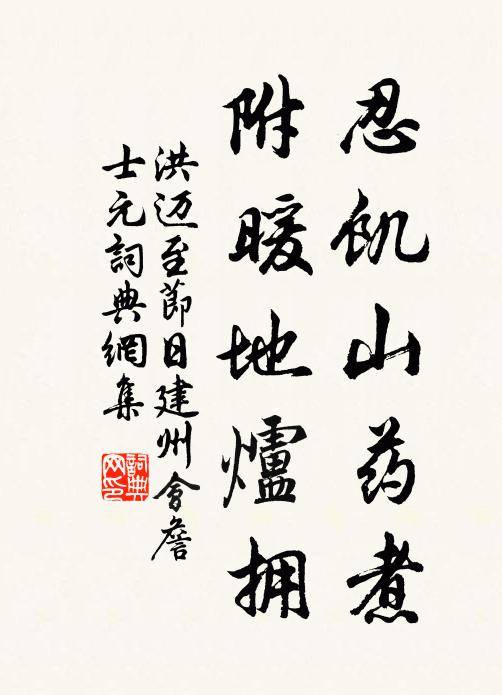 忍飢山药煮
附暖地爐拥
洪迈至節日建州會詹
士元詞典網集
詞典网印